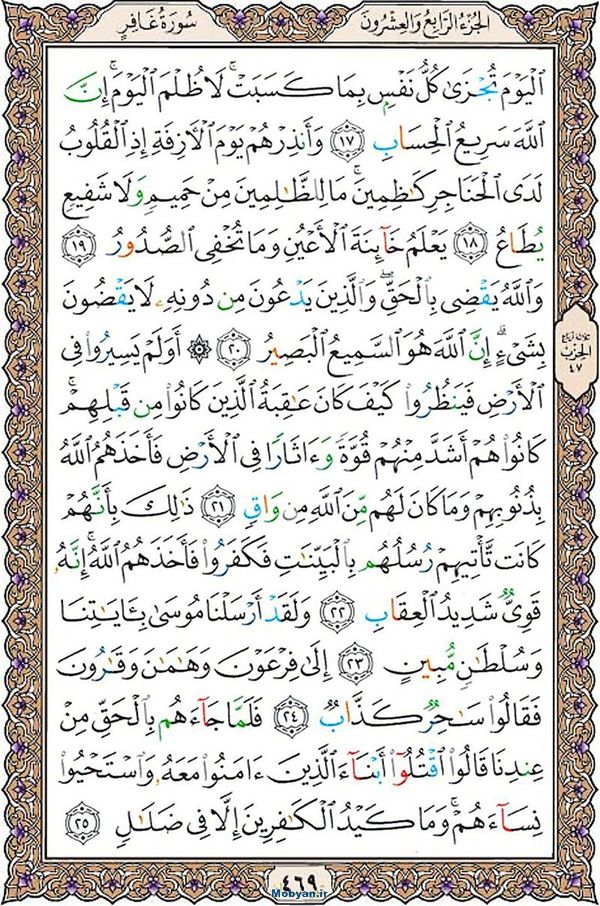 الجزء الرابع والعشرون
سورة غافر
ٱلۡيَوۡمَ تُجۡزَىٰ كُلُّ نَفۡسِۭ بِمَا كَسَبَتۡۚ لَا ظُلۡمَ ٱلۡيَوۡمَۚ إِنَّ
ٱللَّهَ سَرِيعُ ٱلۡحِسَابِ ١٧ وَأَنذِرۡهُمۡ يَوۡمَ ٱلۡأٓزِفَةِ إِذِ ٱلۡقُلُوبُ
لَدَى ٱلۡحَنَاجِرِ كَٰظِمِينَۚ مَا لِلظَّٰلِمِينَ مِنۡ حَمِيمٖ وَلَا شَفِيعٖ
يُطَاعُ ١٨ يَعۡلَمُ خَآئِنَةَ ٱلۡأَعۡيُنِ وَمَا تُخۡفِي ٱلصُّدُورُ ١٩
وَٱللَّهُ يَقۡضِي بِٱلۡحَقِّۖ وَٱلَّذِينَ يَدۡعُونَ مِن دُونِهِۦ لَا يَقۡضُونَ
بِشَيۡءٍۗ إِنَّ ٱللَّهَ هُوَ ٱلسَّمِيعُ ٱلۡبَصِيرُ ٢٠ ۞ أَوَلَمۡ يَسِيرُواْ فِي
ٱلۡأَرۡضِ فَيَنظُرُواْ كَيۡفَ كَانَ عَٰقِبَةُ ٱلَّذِينَ كَانُواْ مِن قَبۡلِهِمۡۚ
كَانُواْ هُمۡ أَشَدَّ مِنۡهُمۡ قُوَّةٗ وَءَاثَارٗا فِي ٱلۡأَرۡضِ فَأَخَذَهُمُ ٱللَّهُ
بِذُنُوبِهِمۡ وَمَا كَانَ لَهُم مِّنَ ٱللَّهِ مِن وَاقٖ ٢١ ذَٰلِكَ بِأَنَّهُمۡ
كَانَت تَّأۡتِيهِمۡ رُسُلُهُم بِٱلۡبَيِّنَٰتِ فَكَفَرُواْ فَأَخَذَهُمُ ٱللَّهُۚ إِنَّهُۥ
قَوِيّٞ شَدِيدُ ٱلۡعِقَابِ ٢٢ وَلَقَدۡ أَرۡسَلۡنَا مُوسَىٰ بِـَٔايَٰتِنَا
وَسُلۡطَٰنٖ مُّبِينٍ ٢٣ إِلَىٰ فِرۡعَوۡنَ وَهَٰمَٰنَ وَقَٰرُونَ
فَقَالُواْ سَٰحِرٞ كَذَّابٞ ٢٤ فَلَمَّا جَآءَهُم بِٱلۡحَقِّ مِنۡ
عِندِنَا قَالُواْ ٱقۡتُلُوٓاْ أَبۡنَآءَ ٱلَّذِينَ ءَامَنُواْ مَعَهُۥ وَٱسۡتَحۡيُواْ
نِسَآءَهُمۡۚ وَمَا كَيۡدُ ٱلۡكَٰفِرِينَ إِلَّا فِي ضَلَٰلٖ ٢٥
ثلاثة أرباع
الحزب
٤٧
٤٦٩
Mobyan.ir